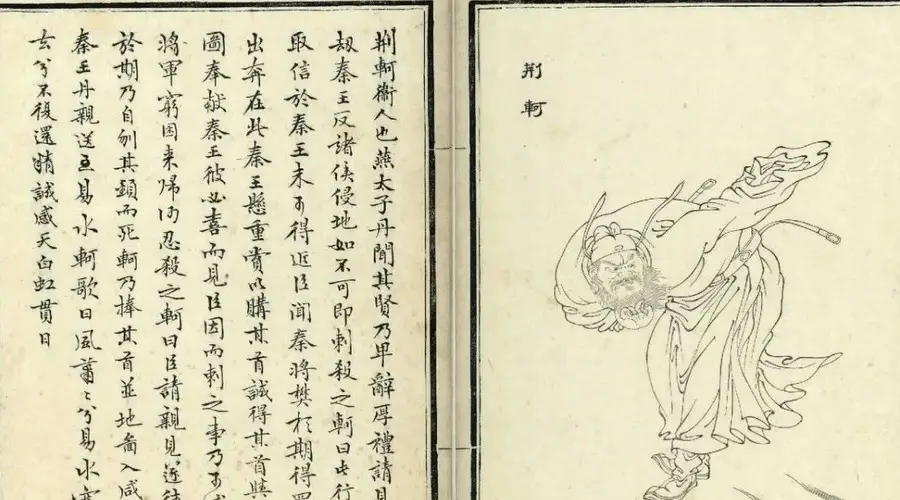 荊軻
荊軻衛人也燕太子丹聞其賢乃卑辭厚禮請見
劫秦王反諸侯侵地如不可即刺殺之軻曰此行
取信於秦王未可得近臣聞秦將樊於期得罪
出奔在此秦王懸重賞以購其首誠得其首與
圖奉獻秦王彼必喜而見臣因而刺之事乃可
將軍窮困來歸何忍殺之軻曰臣請親見
於期乃自刎其頸而死軻乃捧其首並地啚入咸
秦王丹親送至易水軻歌曰風蕭〻兮易水寒
去兮不復還精誠感天白虹貫日